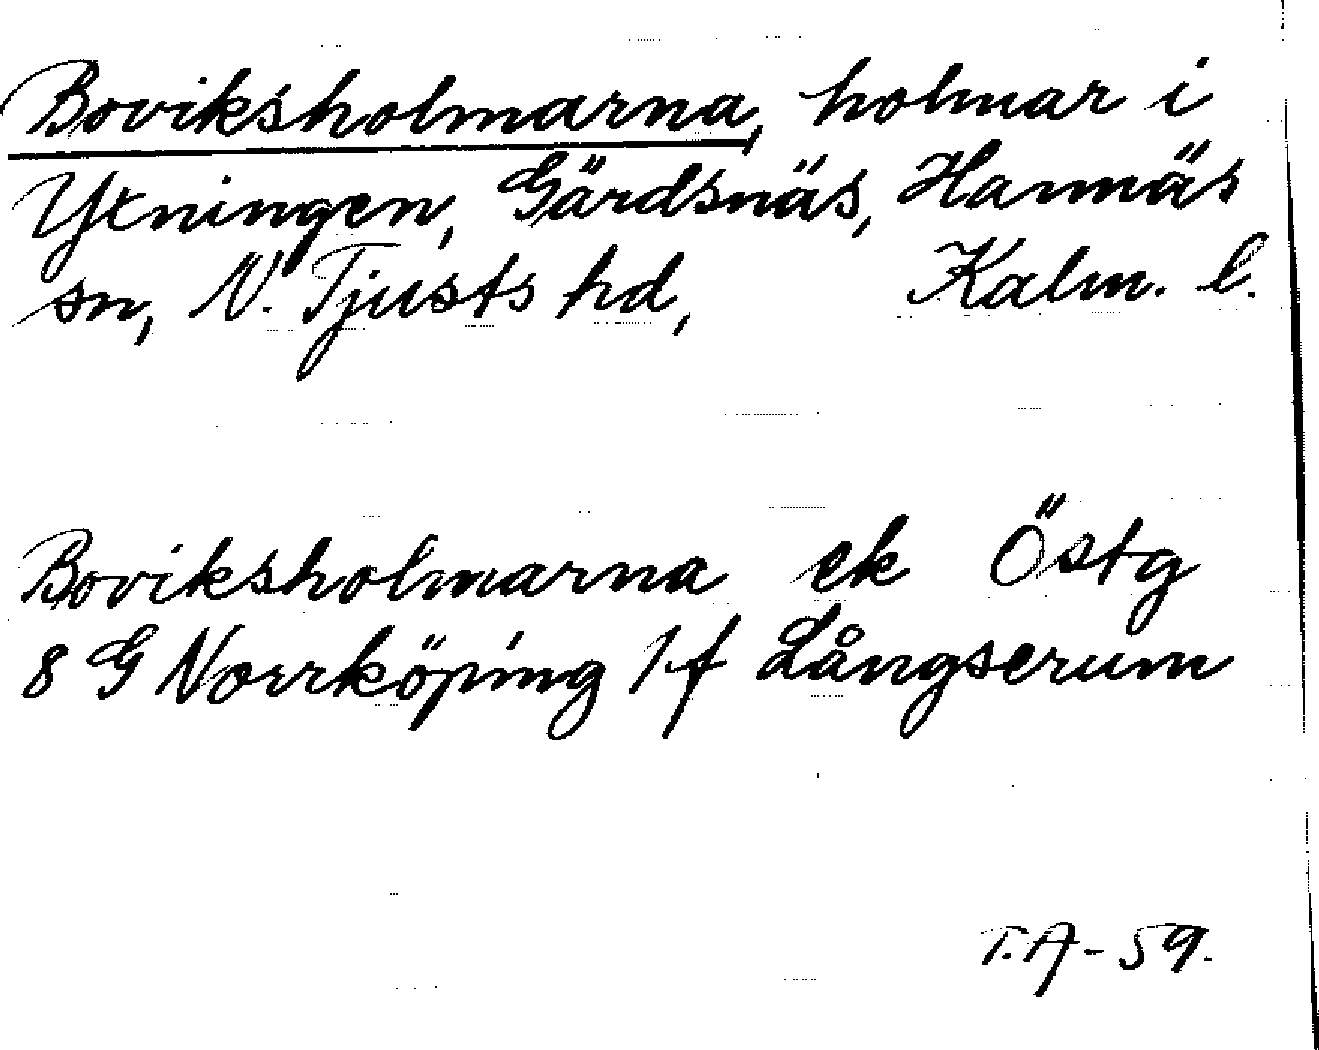 Boviksholmarna, holmar i
Ytningen, Gärdsnäs, Hannäs
sn, N. Tjusts hd, Kalm. l.
Boviksholmarna ek Östg
8 G Norrköping 1f Långserum
T.A-59.